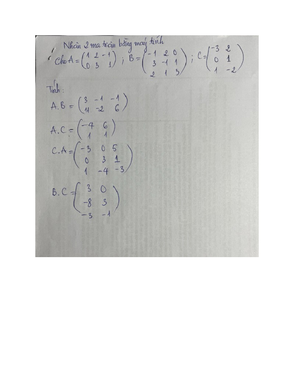 Nhân 2 ma trận bằng máy tính
Cho A = (1 2 -1
0 3 1) ; B = (-1 2 0
3 -1 1
2 1 3) ; C = (-3 2
0 1
1 -2)
Tính
A.B = (3 -1 -1
4 -2 6)
A.C = (-4 6
1 1)
C.A = (-3 0 5
0 3 1
1 -4 -3)
B.C = (3 0
-8 3
-3 -1)